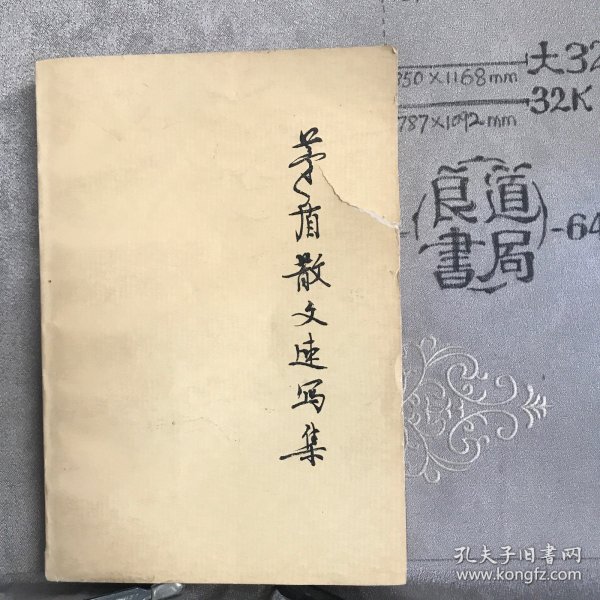 茅盾散文速写集
850×1168mm
大32
32K
787×1092mm
良道
書局
-64
孔夫子旧書网
www.kongfz.com